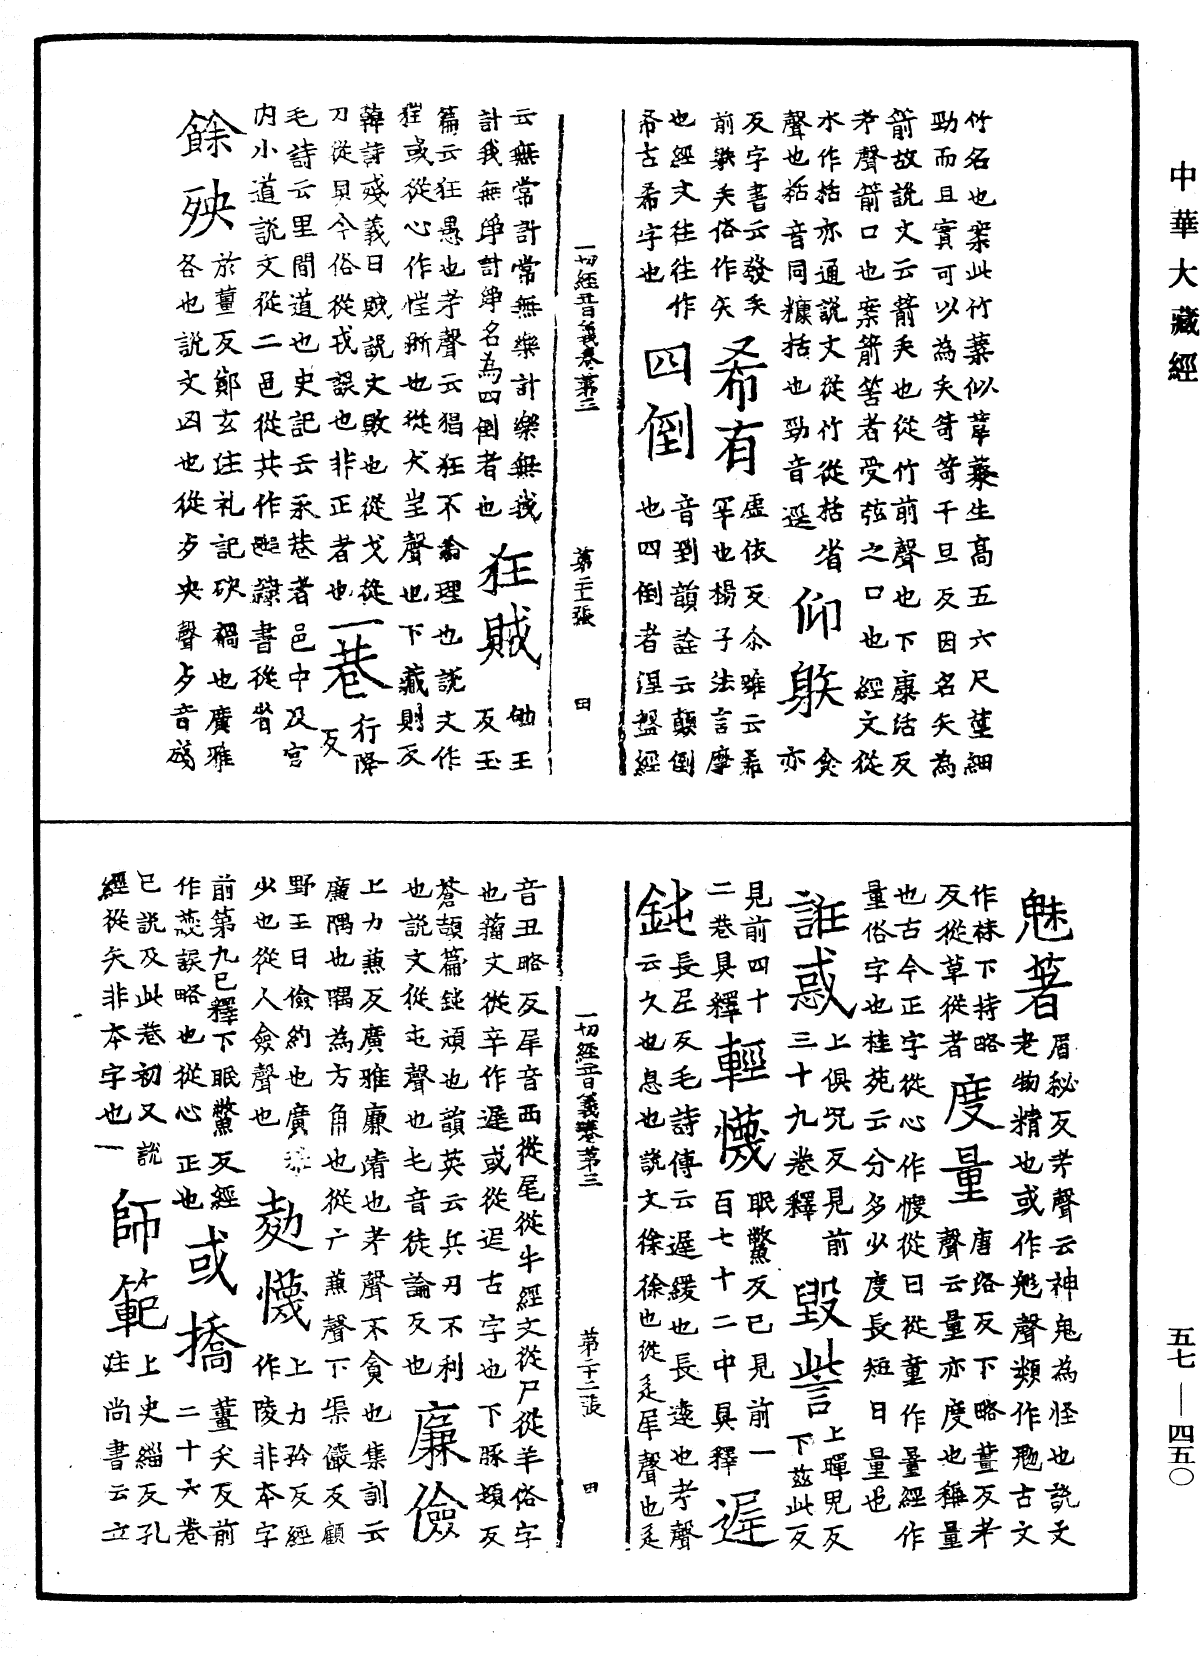 中華大藏經
竹名也案此竹葉似葦藂生高五六尺莖細
勁而且實可以為矢笴笴干旦反因名矢為
箭故説文云箭矢也從竹前聲也下康活反
考聲箭口也案箭筈者受弦之口也經文從
水作括亦通説文從竹從括省 仰䠶 食
聲也栝音同糠括也勁音逕 亦
反字書云發矢 希有 虛依反尒雅云希
前欤矢俗作矢 罕也揚子法言摩
也經文往往作 四倒 音到韻詮云顛倒
帋古希字也 也四倒者涅盤經
一切經音義卷第三 第二十一張 田
云無常計常無樂計樂無我
計我無淨計淨名為四倒者也 狂賊 劬王
篇云狂愚也考聲云猖狂不龠理也説文作 反玉
狴或從心作恇斯也從犬㞷聲也下藏則反
韓詩殘義曰賊説文敗也從戈從
刀從貝今俗從戎誤也非正者也 一巷 行降
毛詩云里閭道也史記云永巷者邑中及宮 反
内小道説文從二邑從共作𨞠隷書從省
餘殃 於薑反鄭玄注礼記殃禍也廣雅
各也説文凶也從歺央聲歺音殘
魅著 眉秘反考聲云神鬼為怪也説文
老物精也或作魅聲類作鬽古文
作䰡下持略反 度量 唐洛反下略薑反考
反從草從者 聲云量亦度也稱量
也古今正字從心作㦜從曰從童作量經作
量俗字也桂苑云分多少度長短曰量也
誑惑 上俱況反見前 毀訾 上暉鬼反
三十九卷釋 下茲此反
見前四十 輕懱 眠鱉反已見前一
二巷具釋 百七十二中具釋 遲
鈍 長尼反毛詩傳云遲緩也長遠也考聲
云久也息也説文徐徐也從辵犀聲也辵
一切經音義卷第三 第二十二張 田
音丑略反犀音西從尾從牛經文從尸從羊俗字
也籕文從辛作遲或從迟古字也下豚頓反
蒼頡篇鈍頑也韻英云兵刃不利 廉儉
也説文從屯聲也屯音徒論反也
上力兼反廣雅廉清也考聲不貪也集訓云
廉隅也隅為方角也從广兼聲下渠儼反顧
野王曰儉約也廣雅 㥄懱 上力矜反經
少也從人僉聲也 作陵非本字
前第九已釋下眠鱉反經 或撟 薑矢反前
作蔑誤略也從心正也 二十六卷
已説及此卷初又説 師範 上史緇反孔
經從矢非本字也一 注尚書云立
五七—四五〇